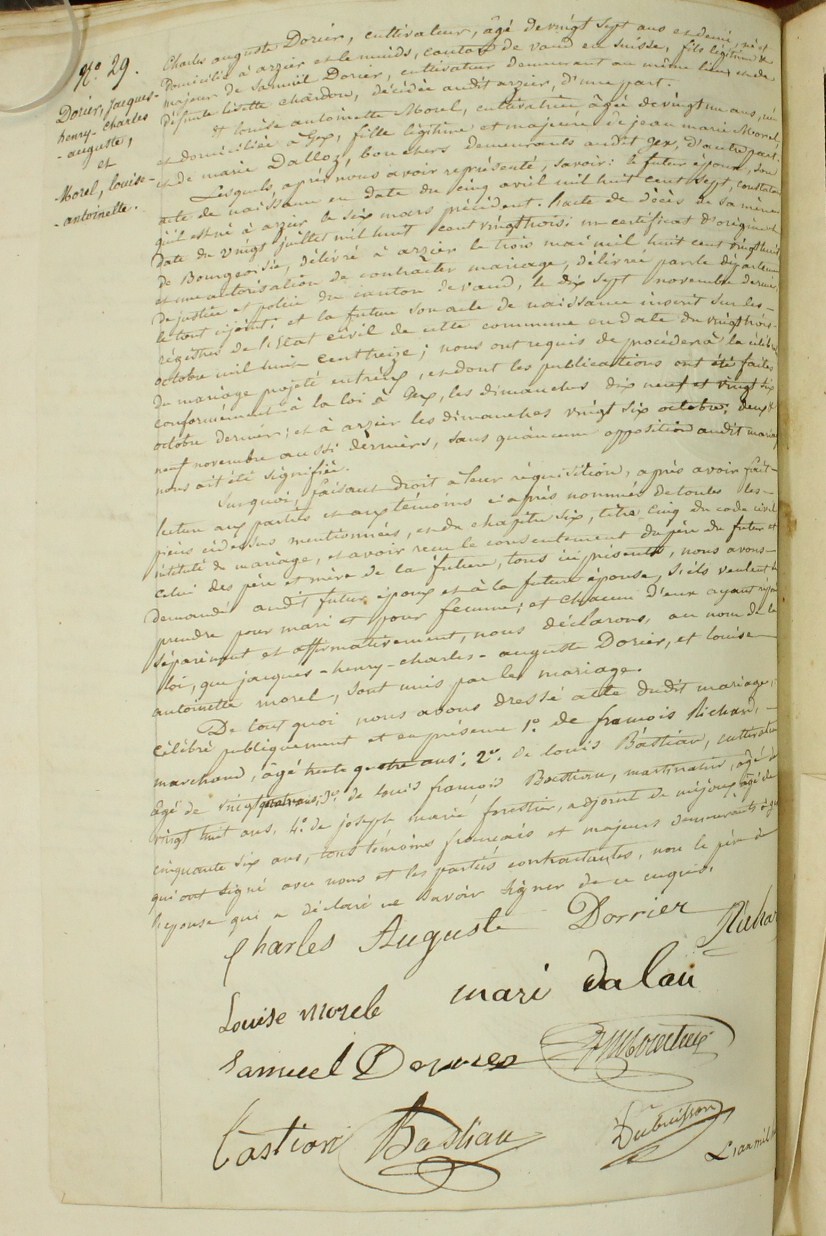 N.o 29.
Dorier, Jacques-
henry-Charles
-auguste,
et
Morel, louise-
-antoinette.
Charles auguste Dorier, cultivateur, âgé de vingt sept ans et demi, né et
domicilié à arzier et le muids, canton de vaud en Suisse, fils légitime et
majeur de Samuel Dorier, cultivateur demeurant au même lieu, et de
défunte lisette chardon, décédée audit arzier, d'une part.
Et louise antoinette Morel, cultivatrice âgée de vingt un ans, née
et domiciliée à Gex, fille légitime et majeure de jean marie Morel,
et de marie Dalloz, bouchers demeurants audit Gex, d'autre part.
Lesquels, après nous avoir représenté, savoir: le futur époux, son
acte de naissance en date du cinq avril mil huit cent sept, constatant
qu'il est né à arzier le six mars précédent. l'acte de décès de sa mère en
date du vingt juillet mil huit cent vingt trois; un certificat d'origine et
de Bourgeoisie, délivré à arzier le trois mai mil huit cent vingt huit
et une autorisation de contracter mariage, délivrée par le département
de justice et police du canton de vaud, le dix sept novembre dernier,
le tout ci joint; et la future son acte de naissance inscrit sur les-
régistres de l'Etat civil de cette commune en date du vingt trois-
octobre mil huit cent treize; nous ont requis de procéder à la célébration
du mariage projeté entr'eux, et dont les publications ont été faites
conformément à la loi à Gex, les dimanches dix neuf et vingt six
octobre dernier; et à arzier les dimanches vingt six octobre, deux et
neuf novembre aussi derniers, sans qu'aucune opposition audit mariage
nous ait été signifiée.
Sur quoi, faisant droit à leur réquisition, après avoir fait-
lecture aux parties et aux témoins ci après nommés de toutes les-
pièces ci dessus mentionnées, et du chapitre six, titre cinq du code civil
intitulé du mariage, et avoir reçu le consentement du père du futur et
celui des père et mère de la future, tous ici présents, nous avons-
demandé audit futur époux et à la future épouse, s'ils veulent se
prendre pour mari et pour femme; et chacun d'eux ayant répondu
séparément et affirmativement, nous déclarons, au nom de la
loi, que jacques-henry-charles-auguste Dorier, et louise
antoinette morel, sont unis par le mariage.
De tout quoi nous avons dressé acte dudit mariage,
célébré publiquement et en présence 1.o de francois Richard,-
marchand, âgé trente quatre ans: 2.o de louis Bastian, cultivateur
âgé de vingt quatre ans, 3.o de louis francois Bastian,
vingt huit ans, 4.o de joseph marie forestier, adjoint de mijoux, âgé de
cinquante six ans, tous témoins francais et majeurs demeurants à Gex
qui ont signé avec nous et les parties contractantes, non le père de
l'épouse qui a déclaré ne savoir signer de ce enquis.
Charles Auguste Dorrier Richar
Louise Morele mari dalau
Samuel
Bastian Bastian Dubuisson